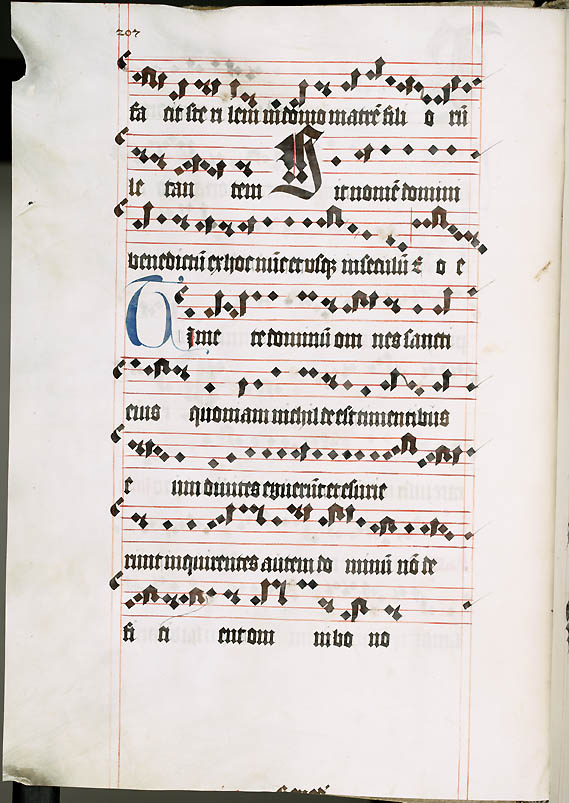 207
fa cit ste ri lem in domo matrē fili o rū
le tan tem Sit nomē domini
benedictū ex hoc nūc et vsq; in seculū E o e
Timete dominū om nes sancti
eius quoniam nichil de est timentibus
e um diuites eguerūt et esurie
runt inquirentes autem do minū nō de
fi ci ent om ni bo no